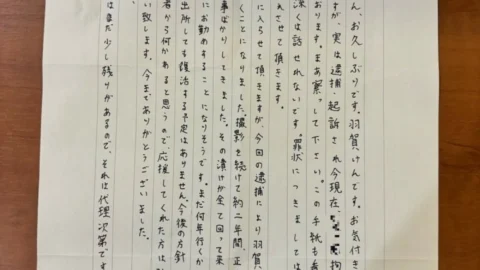 ん、お久しぶりです。羽賀けんです。お気付き
すが、実は逮捕、起訴され今現在、拘
おります。まあ察して下さい。この手紙も
深くは話せれないです。罪状につきましては
れさせて頂きます。
に入らせて頂きますが今回の逮捕により羽賀
くことになりました。撮影を続けて約二年間、正
事ばかりしてきました。その漬けが全て回って来
にお勤めすることになりそうです。まだ何年行くか
出所しても復活する予定はありません。今後の方針
者から何かあると思うので、応援してくれた方は
い致します。今までありがとうございました。
はまだ少し残りがあるので、それは代理次第です